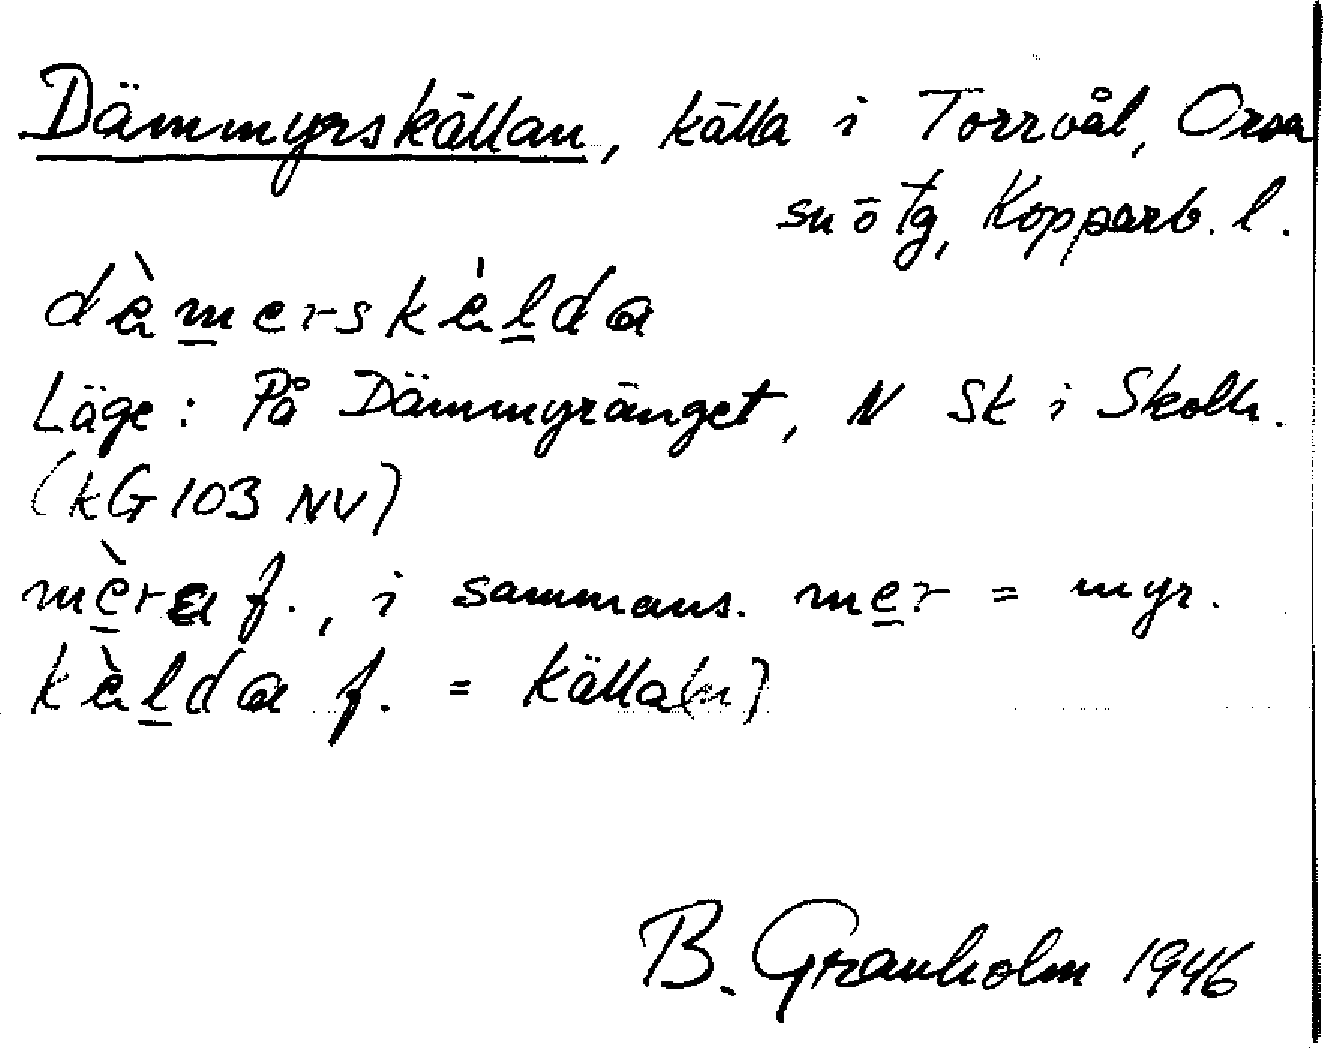 Dämmyrskällan, källa i Torrvål, Orsa
sn o tg, Kopparb. l.
dæ̀m̲erskæ̀l̲da
Läge: På Dämmyränget, N Sk i Skolh.
(kG 103 NV)
mè̲ra f., i sammans. me̲r = myr.
kæ̀l̲da f. = källa(n)
B. Granholm 1946